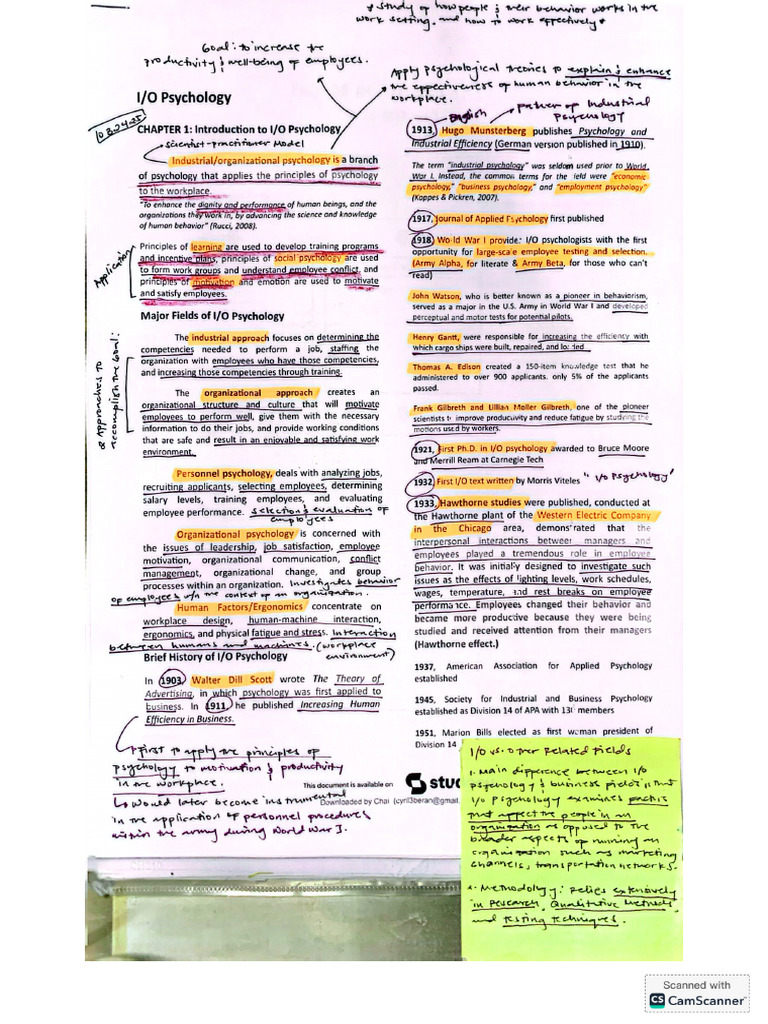 * Study of how people & their behavior works in the
work setting. and how to work effectively *
Goal: to increase the
productivity & well-being of employees.
Apply psychological theories to explain & enhance
the effectiveness of human behavior in the
workplace.
I/O Psychology
10.8.24.25
CHAPTER 1: Introduction to I/O Psychology
scientist-practitioner Model
Industrial/organizational psychology is a branch
of psychology that applies the principles of psychology
to the workplace.
"To enhance the dignity and performance of human beings, and the
organizations they work in, by advancing the science and knowledge
of human behavior" (Rucci, 2008).
Application
Principles of learning are used to develop training programs
and incentive plans, principles of social psychology are used
to form work groups and understand employee conflict, and
principles of motivation and emotion are used to motivate
and satisfy employees.
Major Fields of I/O Psychology
2 Approaches to
accomplish the Goal:
The industrial approach focuses on determining the
competencies needed to perform a job, staffing the
organization with employees who have those competencies,
and increasing those competencies through training.
The organizational approach creates an
organizational structure and culture that will motivate
employees to perform well, give them with the necessary
information to do their jobs, and provide working conditions
that are safe and result in an enjoyable and satisfying work
environment.
Personnel psychology, deals with analyzing jobs,
recruiting applicants, selecting employees, determining
salary levels, training employees, and evaluating
employee performance. selection & evaluation of
employees
Organizational psychology is concerned with
the issues of leadership, job satisfaction, employee
motivation, organizational communication, conflict
management, organizational change, and group
processes within an organization. Investigates behavior
of employees w/n the context of an organization.
Human Factors/Ergonomics concentrate on
workplace design, human-machine interaction,
ergonomics, and physical fatigue and stress. Interaction
between humans and machines. (workplace
environment)
Brief History of I/O Psychology
In 1903, Walter Dill Scott wrote The Theory of
Advertising, in which psychology was first applied to
business. In 1911, he published Increasing Human
Efficiency in Business.
First to apply the principles of
psychology to motivation & productivity
in the workplace.
↳ would later become instrumental
in the application of personnel procedures
within the army during World War I.
English
father of Industrial
Psychology
1913, Hugo Munsterberg publishes Psychology and
Industrial Efficiency (German version published in 1910).
The term "industrial psychology" was seldom used prior to World
War I. Instead, the common terms for the field were "economic
psychology," "business psychology," and "employment psychology"
(Koppes & Pickren, 2007).
1917, Journal of Applied Psychology first published
1918, World War I provide: I/O psychologists with the first
opportunity for large-scale employee testing and selection.
(Army Alpha, for literate & Army Beta, for those who can't
read)
John Watson, who is better known as a pioneer in behaviorism,
served as a major in the U.S. Army in World War I and developed
perceptual and motor tests for potential pilots.
Henry Gantt, were responsible for increasing the efficiency with
which cargo ships were built, repaired, and loaded
Thomas A. Edison created a 150-item knowledge test that he
administered to over 900 applicants. only 5% of the applicants
passed.
Frank Gilbreth and Lillian Moller Gilbreth, one of the pioneer
scientists to improve productivity and reduce fatigue by studying the
motions used by workers.
1921, First Ph.D. in I/O psychology awarded to Bruce Moore
and Merrill Ream at Carnegie Tech
1932, First I/O text written by Morris Viteles "I/O Psychology"
1933, Hawthorne studies were published, conducted at
the Hawthorne plant of the Western Electric Company
in the Chicago area, demonstrated that the
interpersonal interactions between managers and
employees played a tremendous role in employee
behavior. It was initially designed to investigate such
issues as the effects of lighting levels, work schedules,
wages, temperature, and rest breaks on employee
performance. Employees changed their behavior and
became more productive because they were being
studied and received attention from their managers
(Hawthorne effect.)
1937, American Association for Applied Psychology
established
1945, Society for Industrial and Business Psychology
established as Division 14 of APA with 130 members
1951, Marion Bills elected as first woman president of
Division 14
This document is available on
stu
Downloaded by Chai (cyril3beran@gmail.
I/O vs. other Related Fields
1. Main difference between I/O
psychology & business field is that
I/O Psychology examines factors
that affect the people in an
organization as opposed to the
broader aspects of running an
organization such as marketing
channels, transportation networks.
2. Methodology: Relies extensively
in Research, Qualitative Methods,
and testing techniques.
Scanned with
CS CamScanner